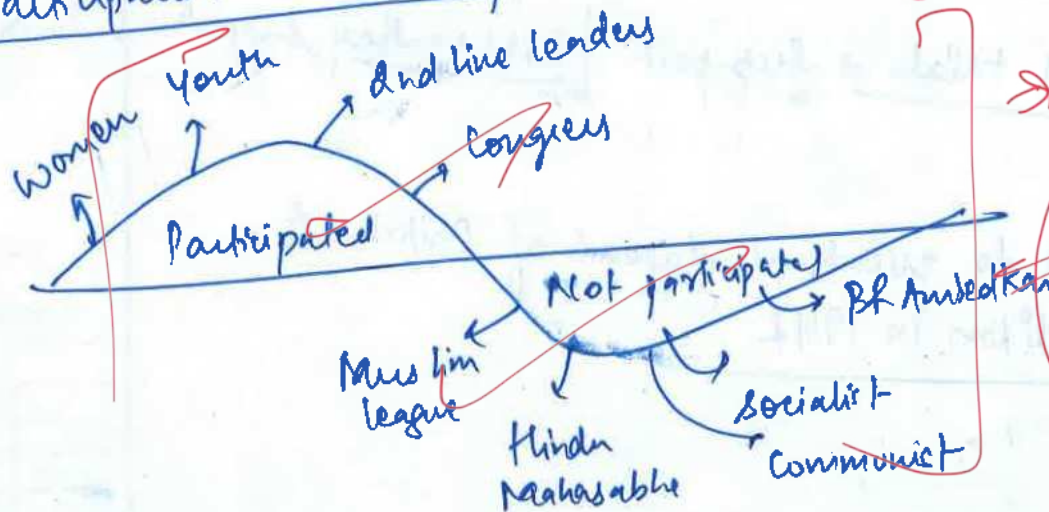 Women
Youth
2nd line leaders
Congress
Participated
Not participated
BR Ambedkar
Muslim
league
Hindu
Mahasabha
Socialist
Communist